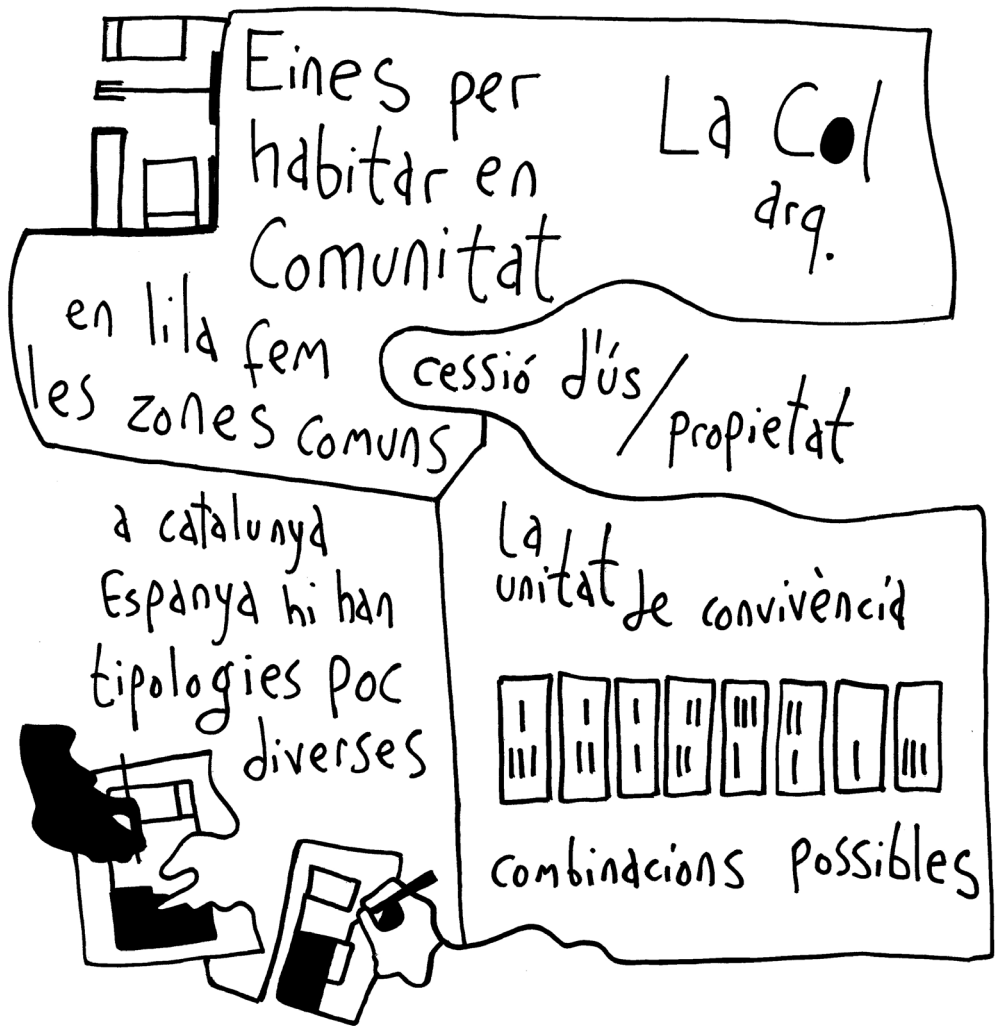 Eines per
habitar en
Comunitat
La Col
arq.
en lila fem
les zones comuns
cessió d'ús/
propietat
a catalunya
Espanya hi han
tipologies poc
diverses
La
unitat de convivència
combinacions possibles